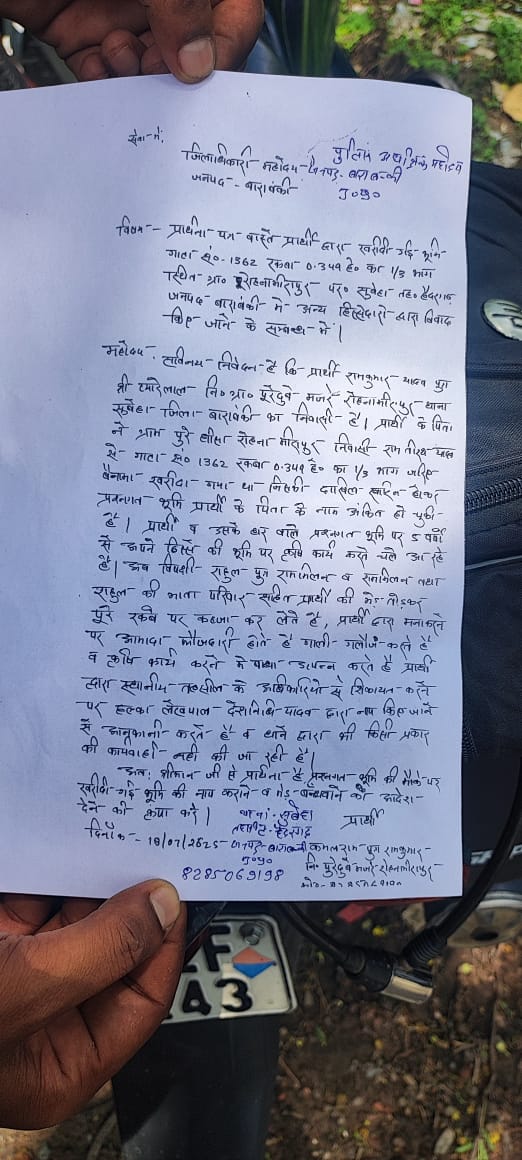 सेवा में,
जिलाधिकारी महोदय
पुलिस अधीक्षक महोदय
जनपद - बाराबंकी
जनपद - बाराबंकी
उ०प्र०
विषय - प्रार्थना पत्र वास्ते प्रार्थी द्वारा खरीदी गई भूमि
गाटा सं०- 1362 रकबा 0.349 हे० का 1/3 भाग
स्थित ग्रा० पूरे रोहनामीरापुर पर० सुबेहा तह० हैदरगढ़
जनपद बाराबंकी में अन्य हिस्सेदारो द्वारा विवाद
किए जाने के सम्बन्ध में |
महोदय, सविनय निवेदन है कि प्रार्थी रामकुमार यादव पुत्र
श्री नि० ग्रा० पूरेदुबे मजरे रोहनामीरापुर थाना
सुबेहा जिला बाराबंकी का निवासी है | प्रार्थी के पिता
ने ग्राम पुरे रोहना मीरापुर निवासी राम तीरथ यादव
से गाटा सं० 1362 रकबा 0.349 हे० का 1/3 भाग जरिए
बैनामा खरीदा गया था जिसकी दाखिल खारिज होकर
प्रश्नगत भूमि प्रार्थी के पिता के नाम अंकित हो चुकी
है | प्रार्थी व उसके घर वाले प्रश्नगत भूमि पर 5 वर्षो
से अपने हिस्से की भूमि पर कृषि कार्य करते चले आ रहे
है | अब विपक्षी राहुल पुत्र राममिलन व राममिलन तथा
राहुल की माता परिवार सहित प्रार्थी की मेड़ तोड़कर
पूरे रकबे पर कब्जा कर लेते है, प्रार्थी द्वारा मना करने
पर आमादा फौजदारी होते है गाली गलौज करते है
व कृषि कार्य करने में बाधा उत्पन्न करते है प्रार्थी
द्वारा स्थानीय तहसील के अधिकारियो से शिकायत करने
पर हल्का लेखपाल यादव द्वारा नाप किए जाने
से आनाकानी करते है व थाने द्वारा भी किसी प्रकार
की कार्यवाही नही की जा रही है |
अतः श्रीमान जी से प्रार्थना है प्रश्नगत भूमि की मौके पर
खरीदी गई भूमि की नाप कराने व मेड़ बन्धवाने का आदेश
देने की कृपा करे |
थाना - सुबेहा
प्रार्थी
तहसील - हैदरगढ़
दिनाँक - 18/07/2025
जनपद - बाराबंकी
उ०प्र०
कमलराम पुत्र रामकुमार
नि० पुरेदुबे मजरे रोहनामीरापुर
8285069198
मो०-
43